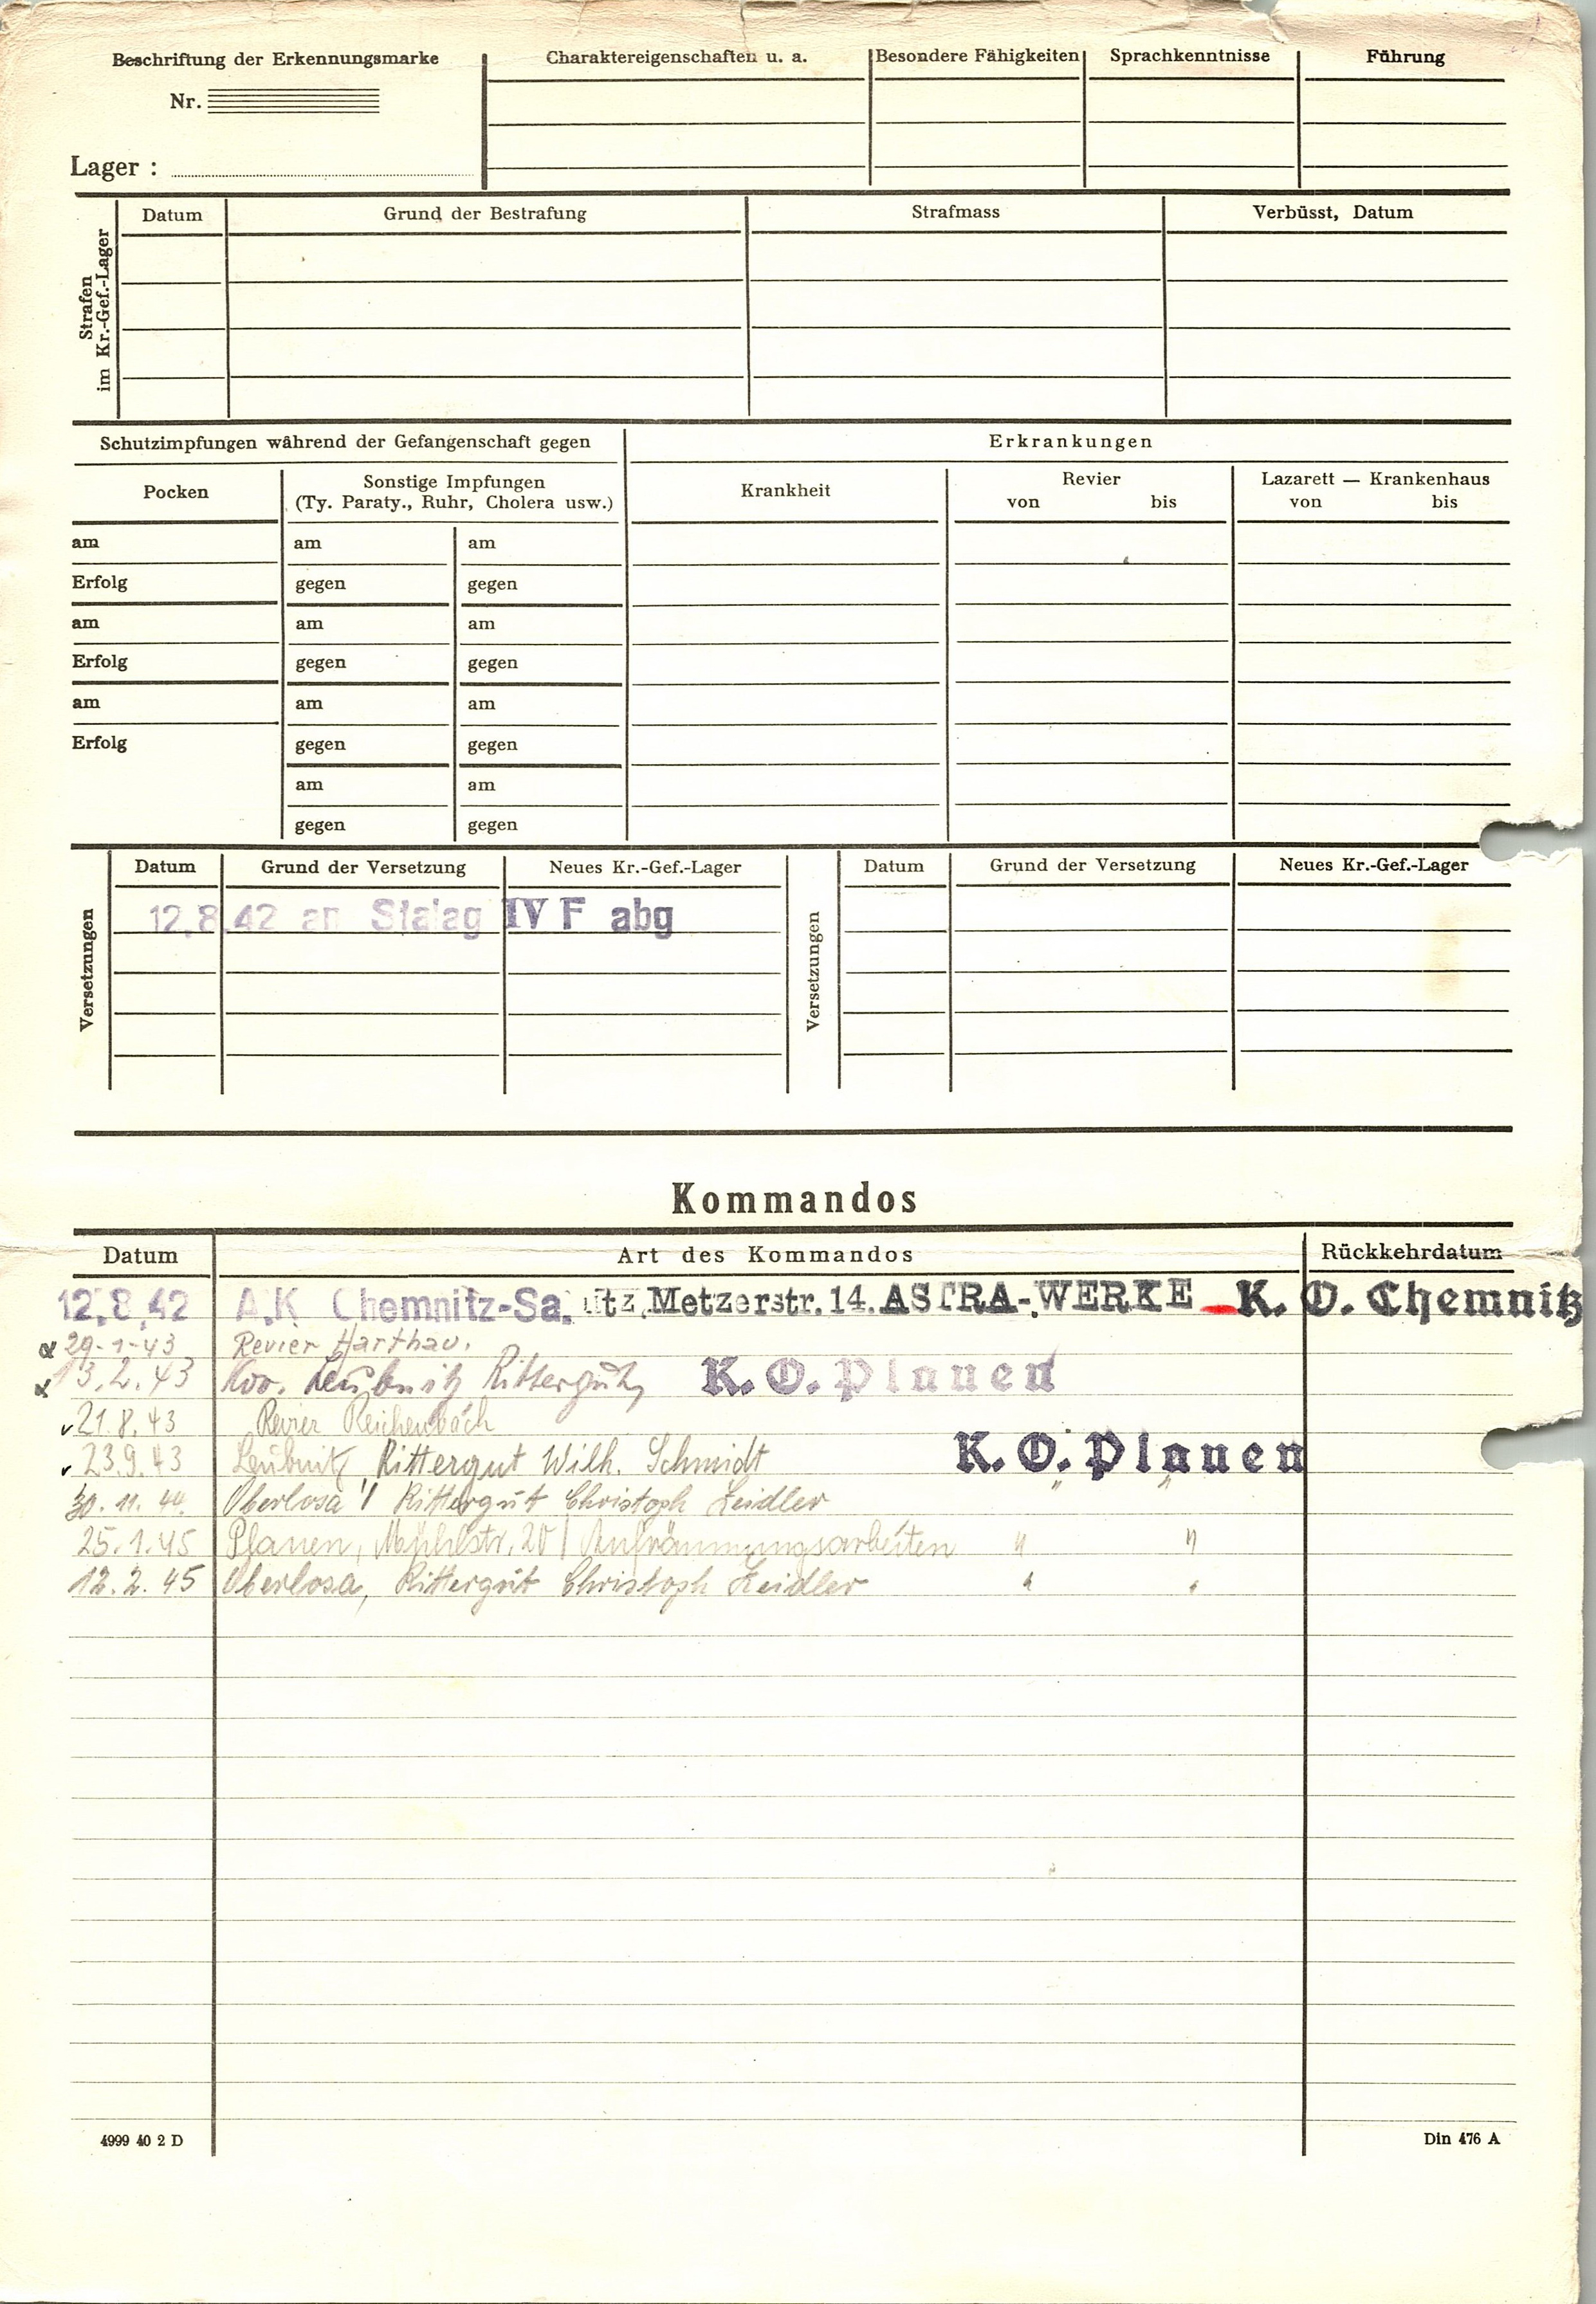 Beschriftung der Erkennungsmarke Charaktereigenschaften u. a. Besondere Fähigkeiten Sprachkenntnisse Führung
Nr.
Lager :
Strafen im Kr.-Gef.-Lager
Datum Grund der Bestrafung Strafmass Verbüsst, Datum
Schutzimpfungen während der Gefangenschaft gegen Erkrankungen
Pocken Sonstige Impfungen Krankheit Revier Lazarett — Krankenhaus
(Ty. Paraty., Ruhr, Cholera usw.) von bis von bis
am am am
Erfolg gegen gegen
am am am
Erfolg gegen gegen
am am am
Erfolg gegen gegen
am am
gegen gegen
Versetzungen Datum Grund der Versetzung Neues Kr.-Gef.-Lager Versetzungen Datum Grund der Versetzung Neues Kr.-Gef.-Lager
12.8.42 an Stalag IV F abg
Kommandos
Datum Art des Kommandos Rückkehrdatum
12.8.42 A.K Chemnitz-Sa. itz Metzerstr. 14. ASTRA-WERKE K. O. Chemnitz
29-1-43 Revier Harthau.
13.2.43 Leubnitz Rittergut, K. O. Plauen
21.8.43 Revier Reichenbach
23.9.43 Leubnitz, Rittergut Wilh. Schmidt K. O. Plauen
30.11.44. Oberlosa Rittergut Christoph Zeidler " "
25.1.45 Plauen, 20 Aufräumungsarbeiten " "
12.2.45 Oberlosa, Rittergut Christoph Zeidler " "
4999 40 2 D Din 476 A